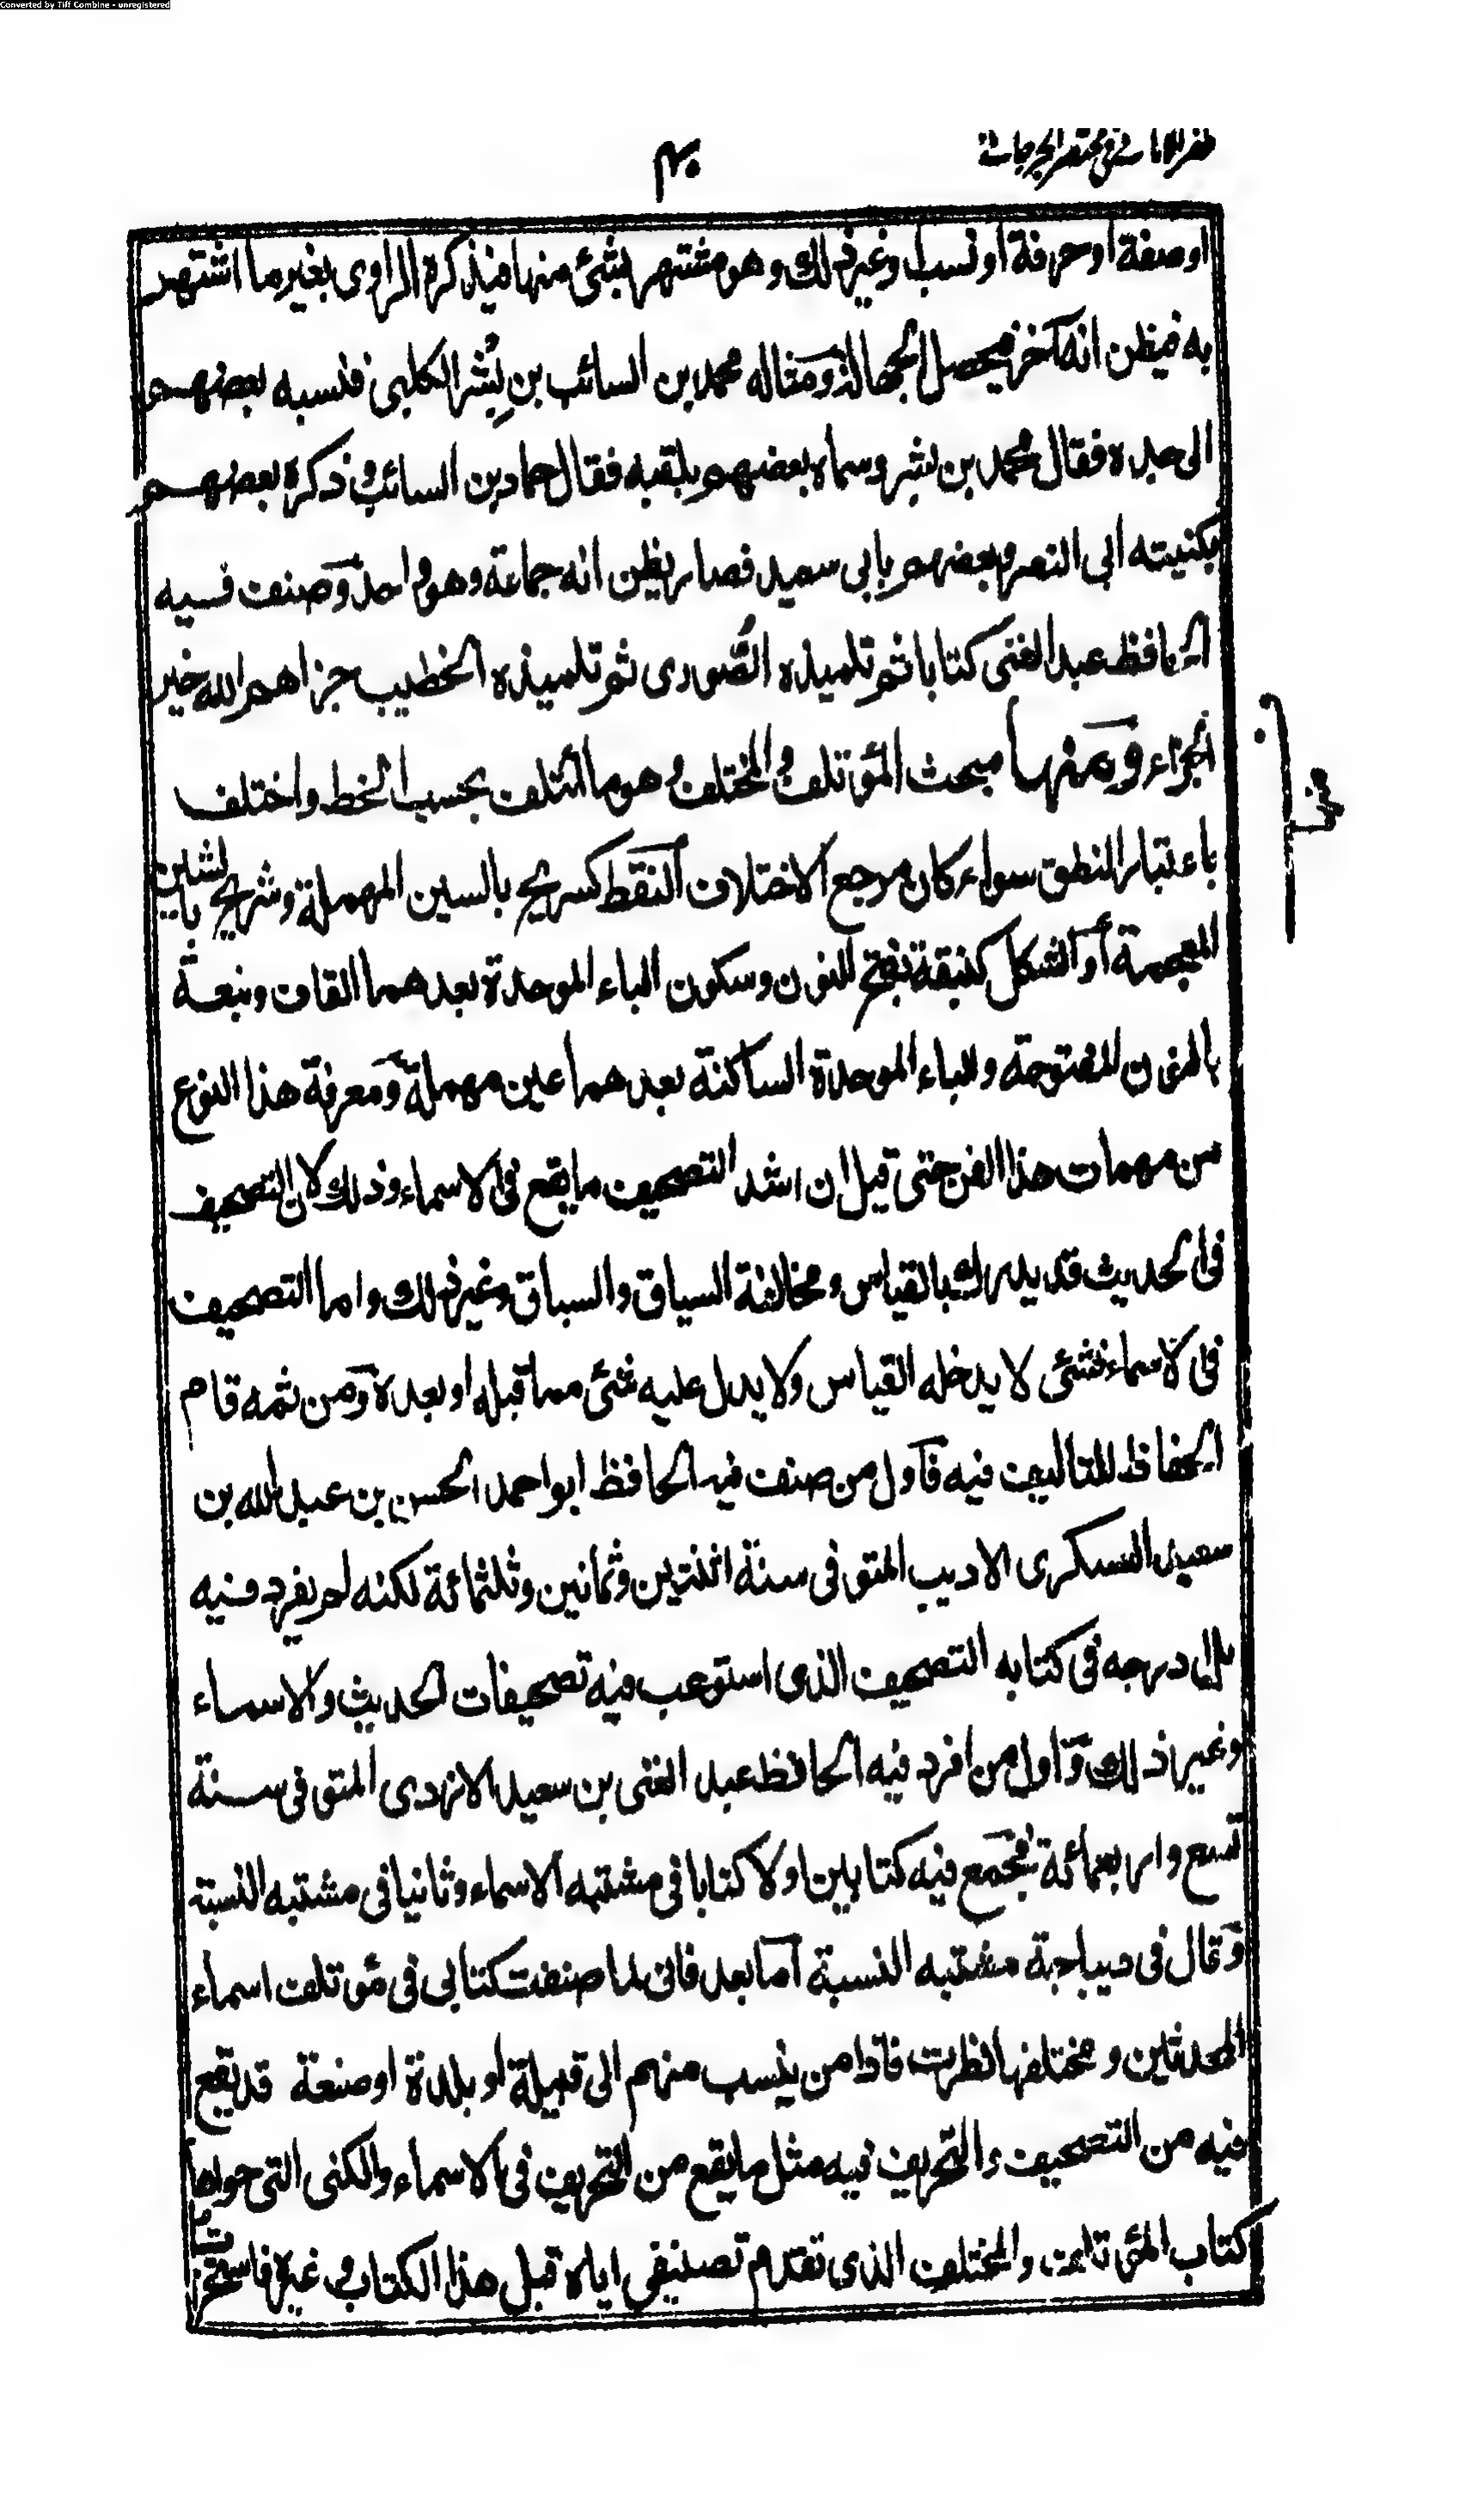 Converted by Tiff Combine - unregistered
ظفر الامانى فى مختصر الجرجانى
٤٠
او صفة او حرفة او نسب او غير ذلك وهو مشتهر بشئ منها فيذكره الراوى بغير ما اشتهر
به فيظن انه آخر فيحصل الجهالة ومثاله محمد بن السائب بن بِشْر الكلبى فنسبه بعضهم
الى جده فقال محمد بن بشر وسماه بعضهم بلقبه فقال حماد بن السائب وذكره بعضهم
بكنيته ابى النصر وبعضهم بابى سعيد فصار يظن انه جماعة وهو واحد وصنف فيه
الحافظ عبد الغنى كتابا ثم تلميذه الصُّورى ثم تلميذه الخطيب جزاهم الله خير
الجزاء ومنها مبحث المؤتلف والمختلف وهو ما ائتلف بحسب الخط واختلف
باعتبار النطق سواء كان مرجع الاختلاف النقط كسريج بالسين المهملة وشريح بالشين
المعجمة او الشكل كنبقة بفتح النون وسكون الباء الموحدة بعدهما القاف ونبعة
بالنون المفتوحة والباء الموحدة الساكنة بعدهما عين مهملة ومعرفة هذا النوع
من مهمات هذا الفن حتى قيل ان اشد التصحيف ما يقع فى الاسماء وذلك لان التصحيف
فى الحديث قد يدرك بالقياس ومخالفة السياق والسباق وغير ذلك واما التصحيف
فى الاسماء فشئى لا يدخله القياس ولا يدل عليه شئى مما قبله او بعده ومن ثمه قام
الحفاظ للتاليف فيه فاول من صنف فيه الحافظ ابو احمد الحسن بن عبد الله بن
سعيد العسكرى الاديب المتوفى سنة اثنتين وثمانين وثلثمائة لكنه لم يفرد فيه
بل ادرجه فى كتابه التصحيف الذى استوعب فيه تصحيفات الحديث والاسماء
وغير ذلك واول من افرد فيه الحافظ عبد الغنى بن سعيد الازدى المتوفى سنة
تسع واربعمائة فجمع فيه كتابين اولا كتابا فى مشتبه الاسماء وثانيا فى مشتبه النسبة
وقال فى ديباجة مشتبه النسبة اما بعد فانى لما صنفت كتابى فى مؤتلف اسماء
المحدثين ومختلفها نظرت فاذا من ينسب منهم الى قبيلة او بلدة او صنعة قد يقع
فيه من التصحيف والتحريف فيه مثل ما يقع من التحريف فى الاسماء والكنى التى حواها
كتاب المؤتلف والمختلف الذى تقدم تصنيفى اياه قبل هذا الكتاب وغيره فاستخرت